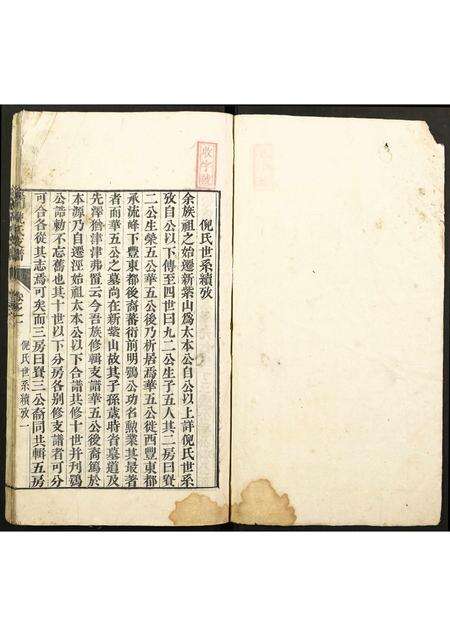 倪氏世系續攷
余族祖之始遷新紫山為太本公自公以上詳倪氏世系
攷自公以下傳至四世曰九二公生子五人其二房曰賚
二公生榮五公華五公後乃析居焉華五公徙西豐東都
承流峰下豐東都後裔蕃衍前明鴞公功名勲業其最著
者而華五公之墓尚在新紫山故其子孫歲時省墓道及
先澤猶津津弗置云今吾族修輯支譜華五公後裔篤於
本源乃自遷涇始祖太本公以下合譜共修十世并刊鴞
公誥勅不忘舊也其十世以下分房各别修支譜者可分
可合各從其志焉可矣而三房曰賚三公裔同共輯五房
倪氏世系續攷 一